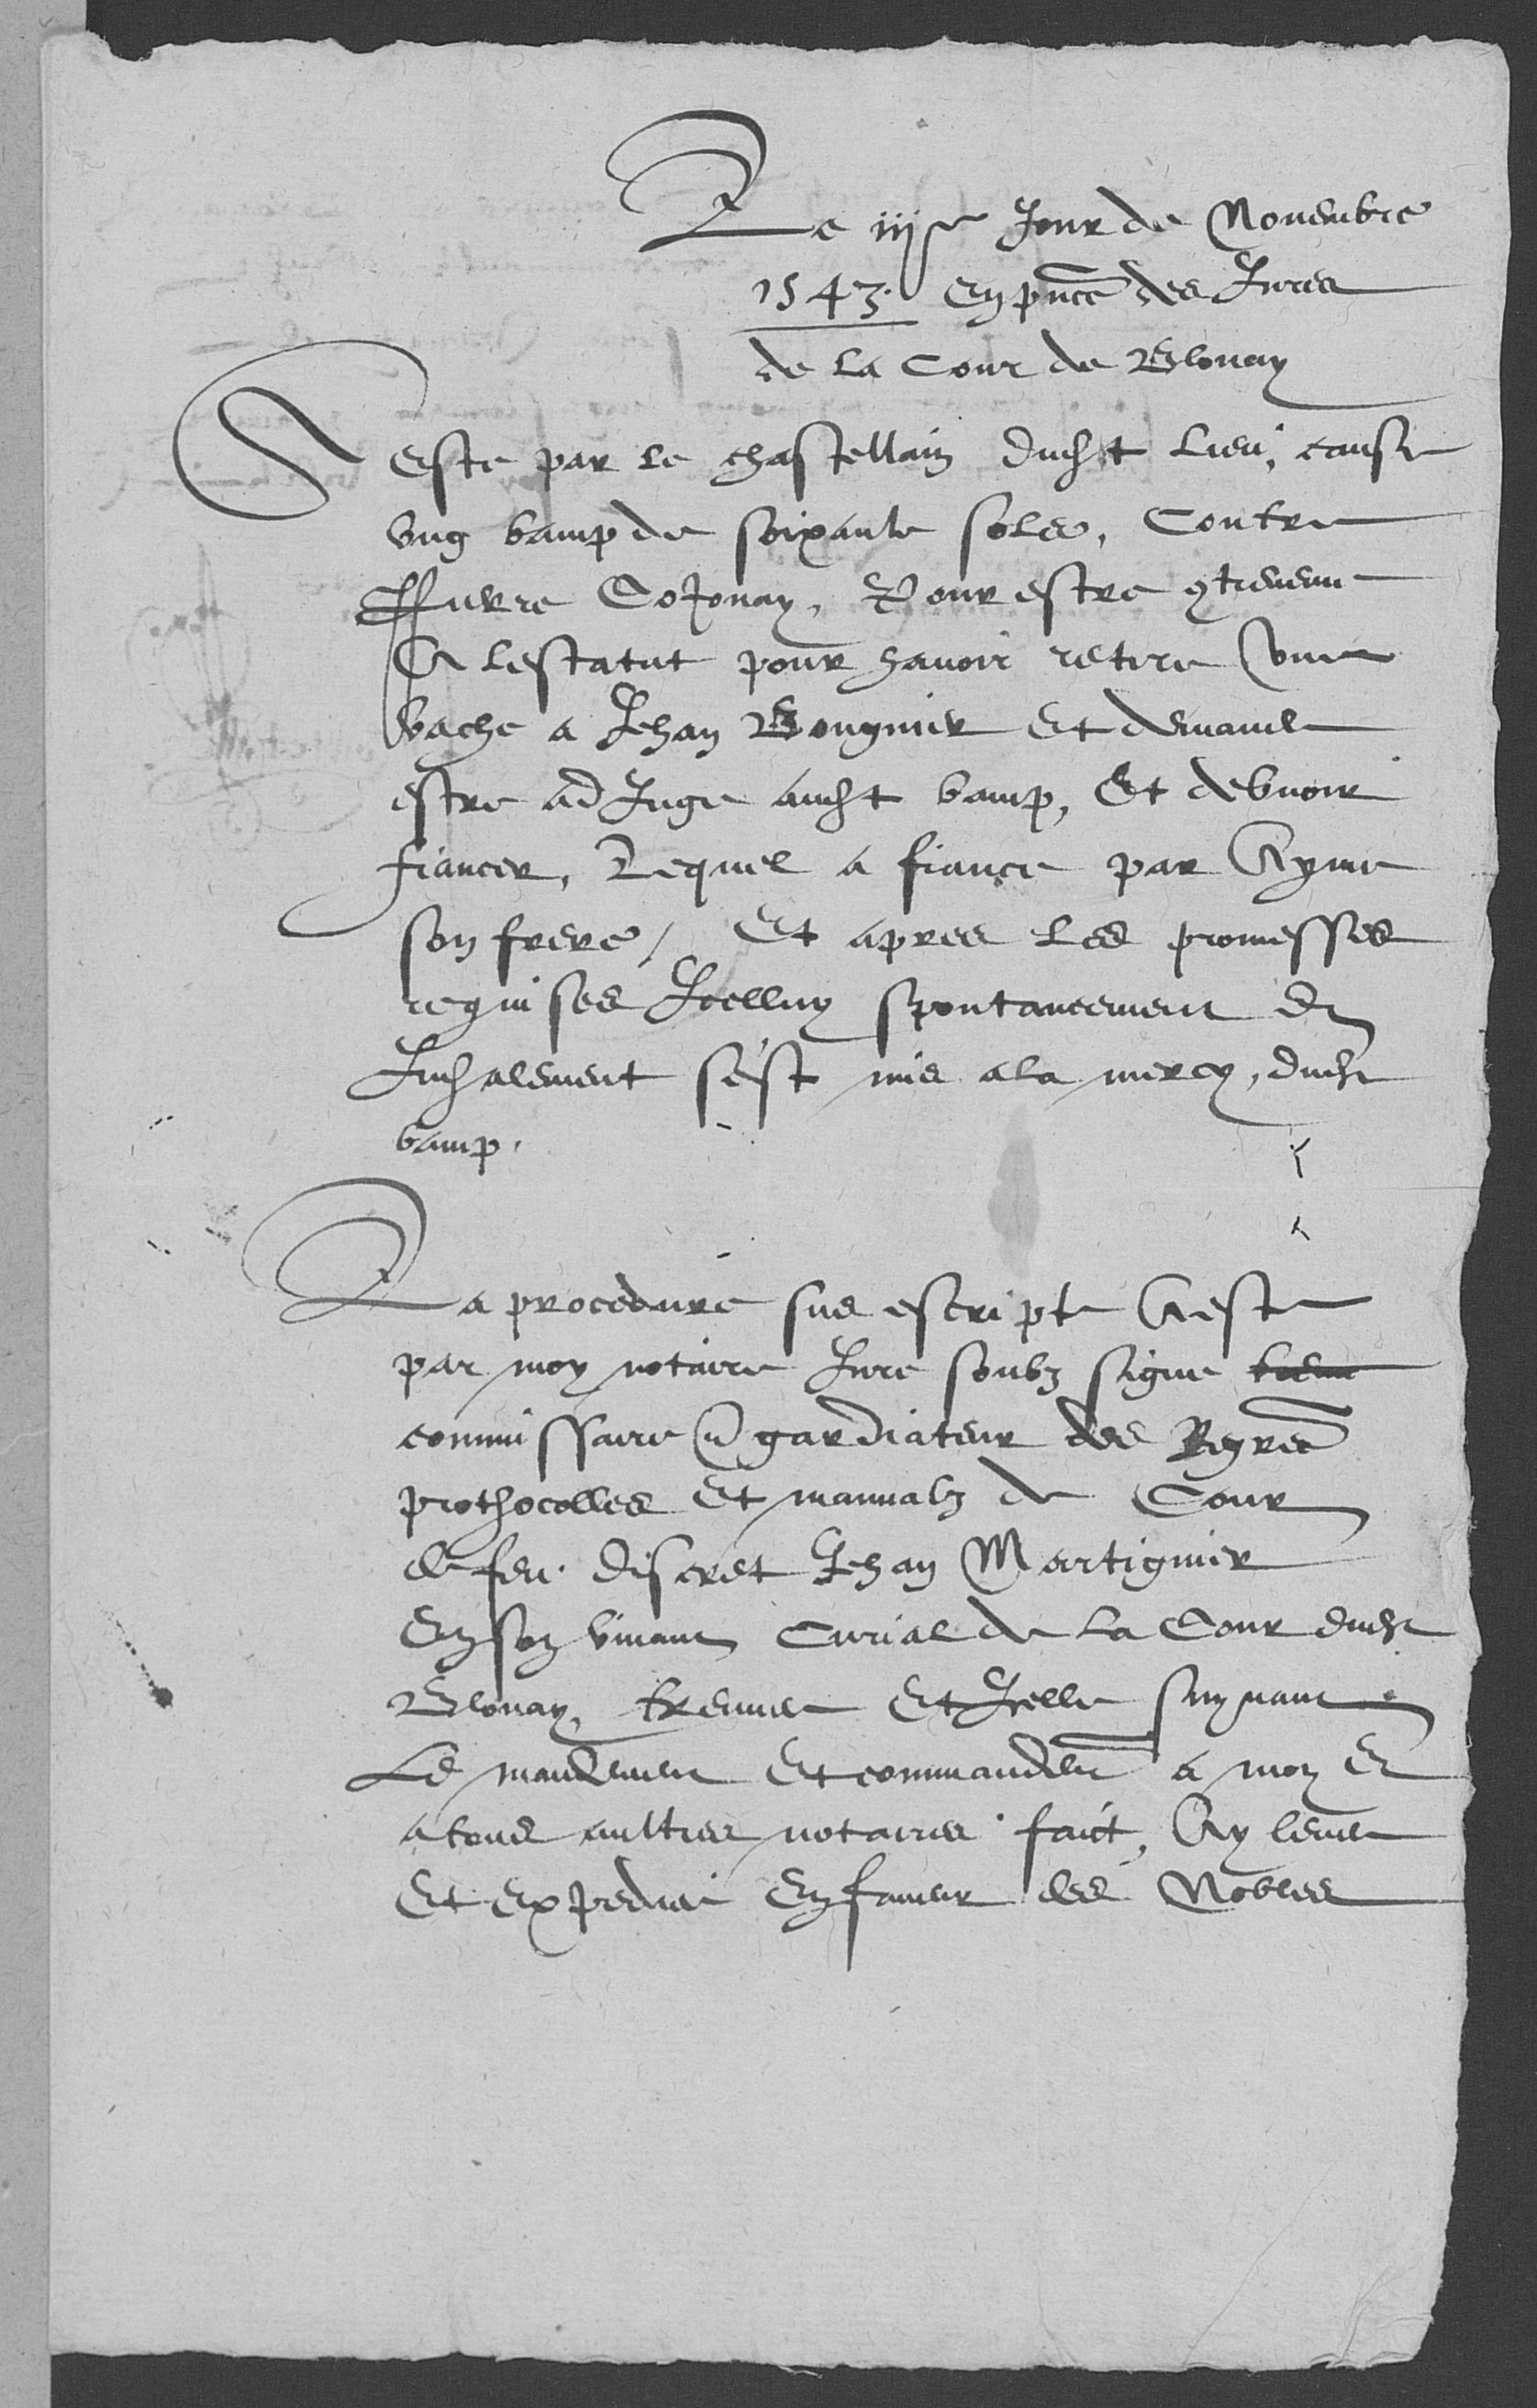 Le iiije Jour de Novembre
1543. En pnce des Jures
de la Cour de Blonay
A este par le chastellain dudit lieu, cause
ung bamp de soixante sols, Contre
Pierre Cojonay, Pour estre contrevenu
A lestatut pour havoir retire une
vache a Jehan Bougnier Et demande
estre adJuge audit bamp, Et debvoir
fiancer, Lequel a fiance par Ayme
son frere / Et apres les promesses
requises Icelluy spontaneement Et
Judicialement sest mis a la mercy, dudit
bamp.
La procedure sus escripte A este
par moy notaire Jure soubz signe
commissaire et gardiateur des Regres
prothocolles Et manualz de Cour
de feu discret Jehan Martignier
En son vivant Curial de la Cour dudit
Blonay, treuvee Et Icelle suyvant
Le mandement Et commandemt a moy Et
a tous aultres notaires faict, Ay levee
Et Expediee En faveur des Nobles